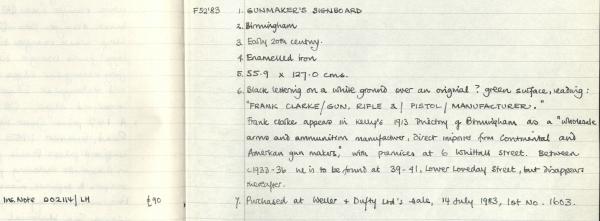 F52'83 1. GUNMAKER'S SIGNBOARD
2. Birmingham
3. Early 20th century.
4. Enamelled iron
5. 55.9 x 127.0 cms.
6. Black lettering on a white ground over an original ? green surface, reading:
"FRANK CLARKE/GUN, RIFLE &/ PISTOL/MANUFACTURER."
Frank Clarke appears in Kelly's 1913 Directory of Birmingham as a "Wholesale
arms and ammunition manufacturer, Direct importer from Continental and
American gun makers," with premises at 6 Whittall Street. Between
c1933-36 he is to be found at 39-41, Lower Loveday Street, but disappears
thereafter.
Ins. Note 002114/LH £90 7. Purchased at Weller & Dufty Ltd's sale, 14 July 1983, lot No. 1603.